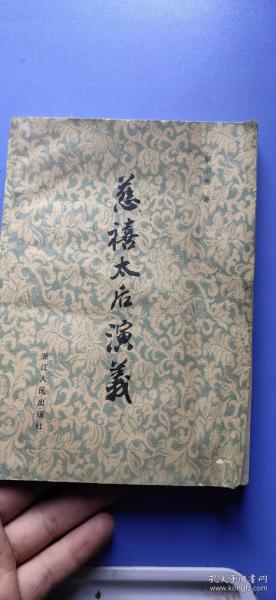 慈禧太后演義
浙江人民出版社
著
孔夫子旧书网